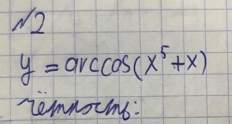 №2
y = arccos(x⁵+x)
чётность: